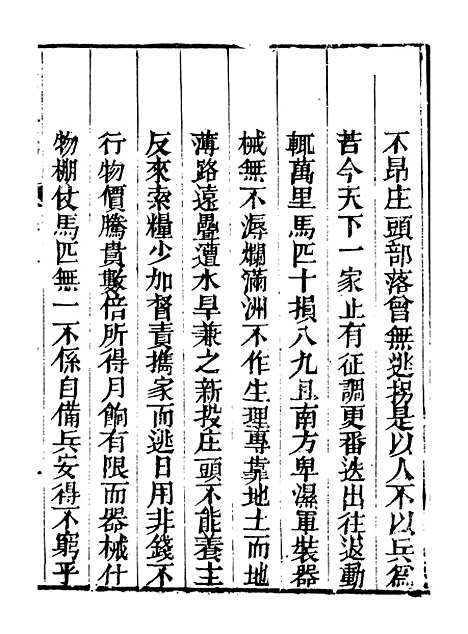 不昂庄頭部落曾無逃拐是以人不以兵爲
苦今天下一家止有征調更番迭出往返動
輒萬里馬匹十損八九且南方卑濕軍裝器
械無不溽爛滿洲不作生理專靠地土而地
薄路遠疊遭水旱兼之新投庄頭不能養主
反來索糧少加督責攜家而逃日用非錢不
行物價騰貴數倍所得月餉有限而器械什
物棚仗馬匹無一不係自備兵安得不窮乎